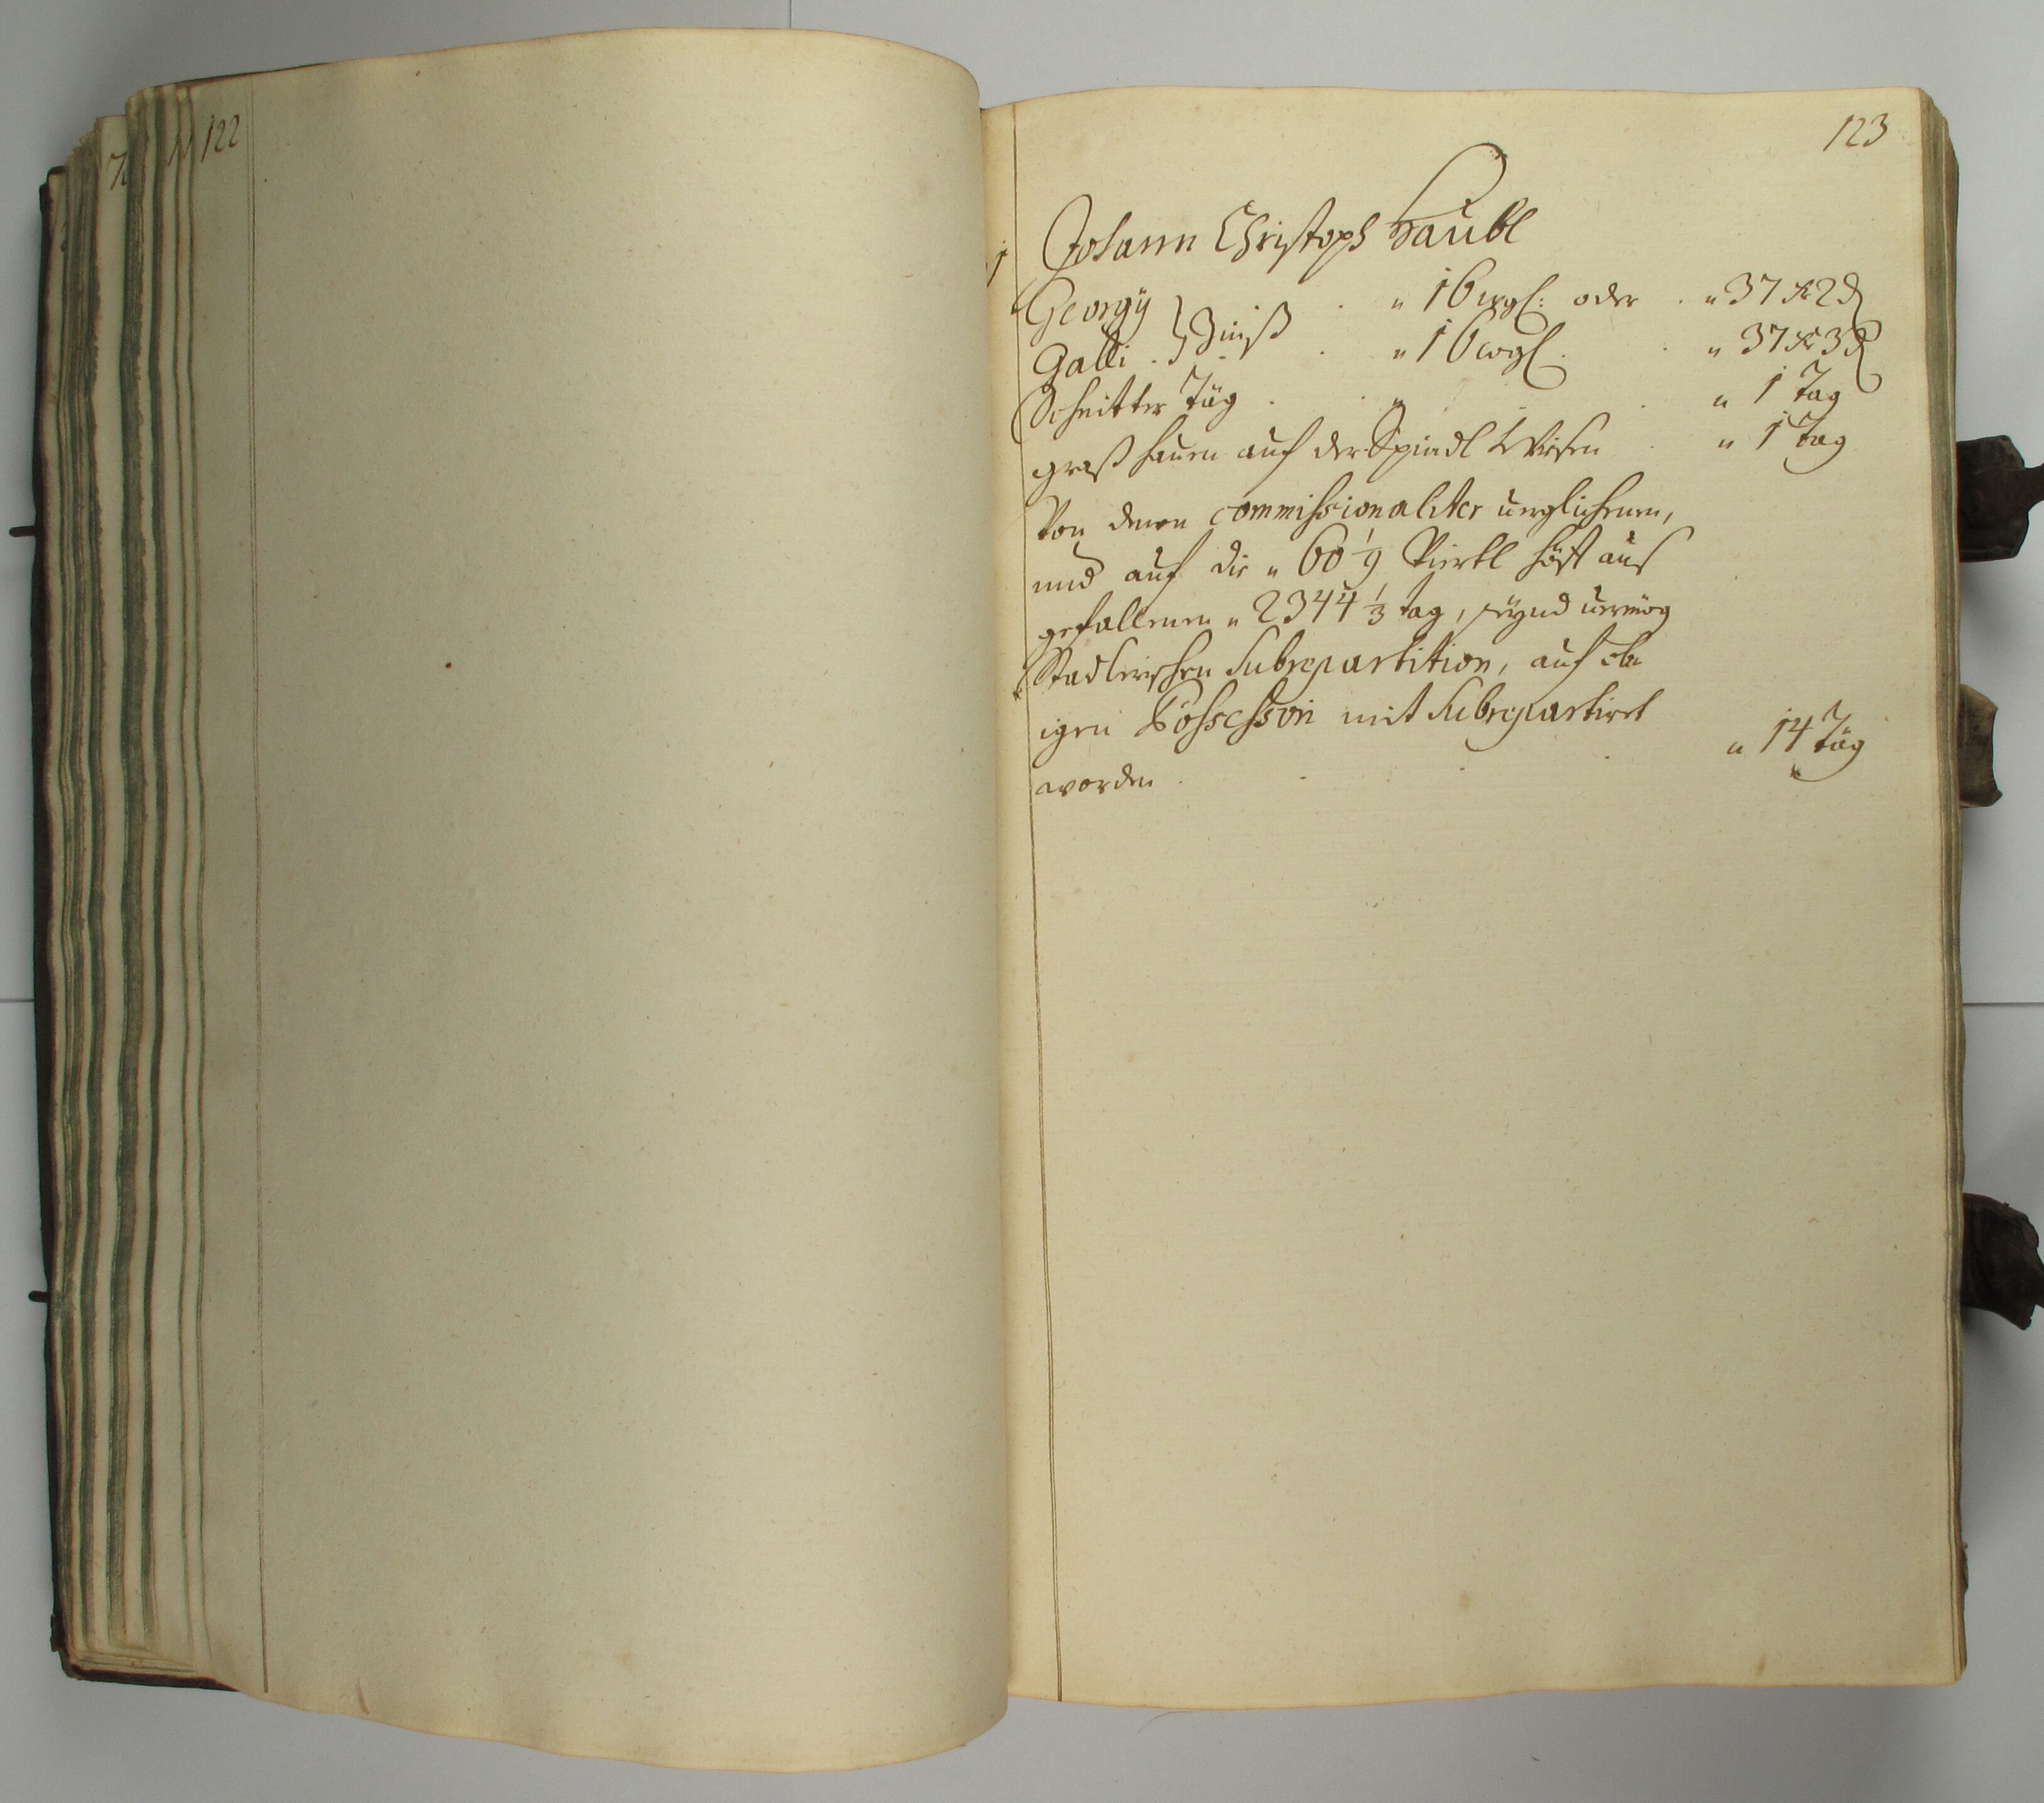 122
123
Johann Christoph Haubl
Georgÿ } Zinß . " 16 wgl: oder . " 37 xr 2 d
Galli . . " 16 wgl. . " 37 xr 3 d
Schnitter Täg . . " . . " 1 Tag
graß hauen auf der Spindl Wisen . " 1 Tag
Von denen commissionaliter verglichenen,
und auf die " 60 1/9 Viertl höff aus
gefallenen " 2344 1/3 tag, seynd vermög
Stadlerischen Subrepartition, auf ob
igen Possessorn mit Subrepartirt
worden . . . . " 14 Täg